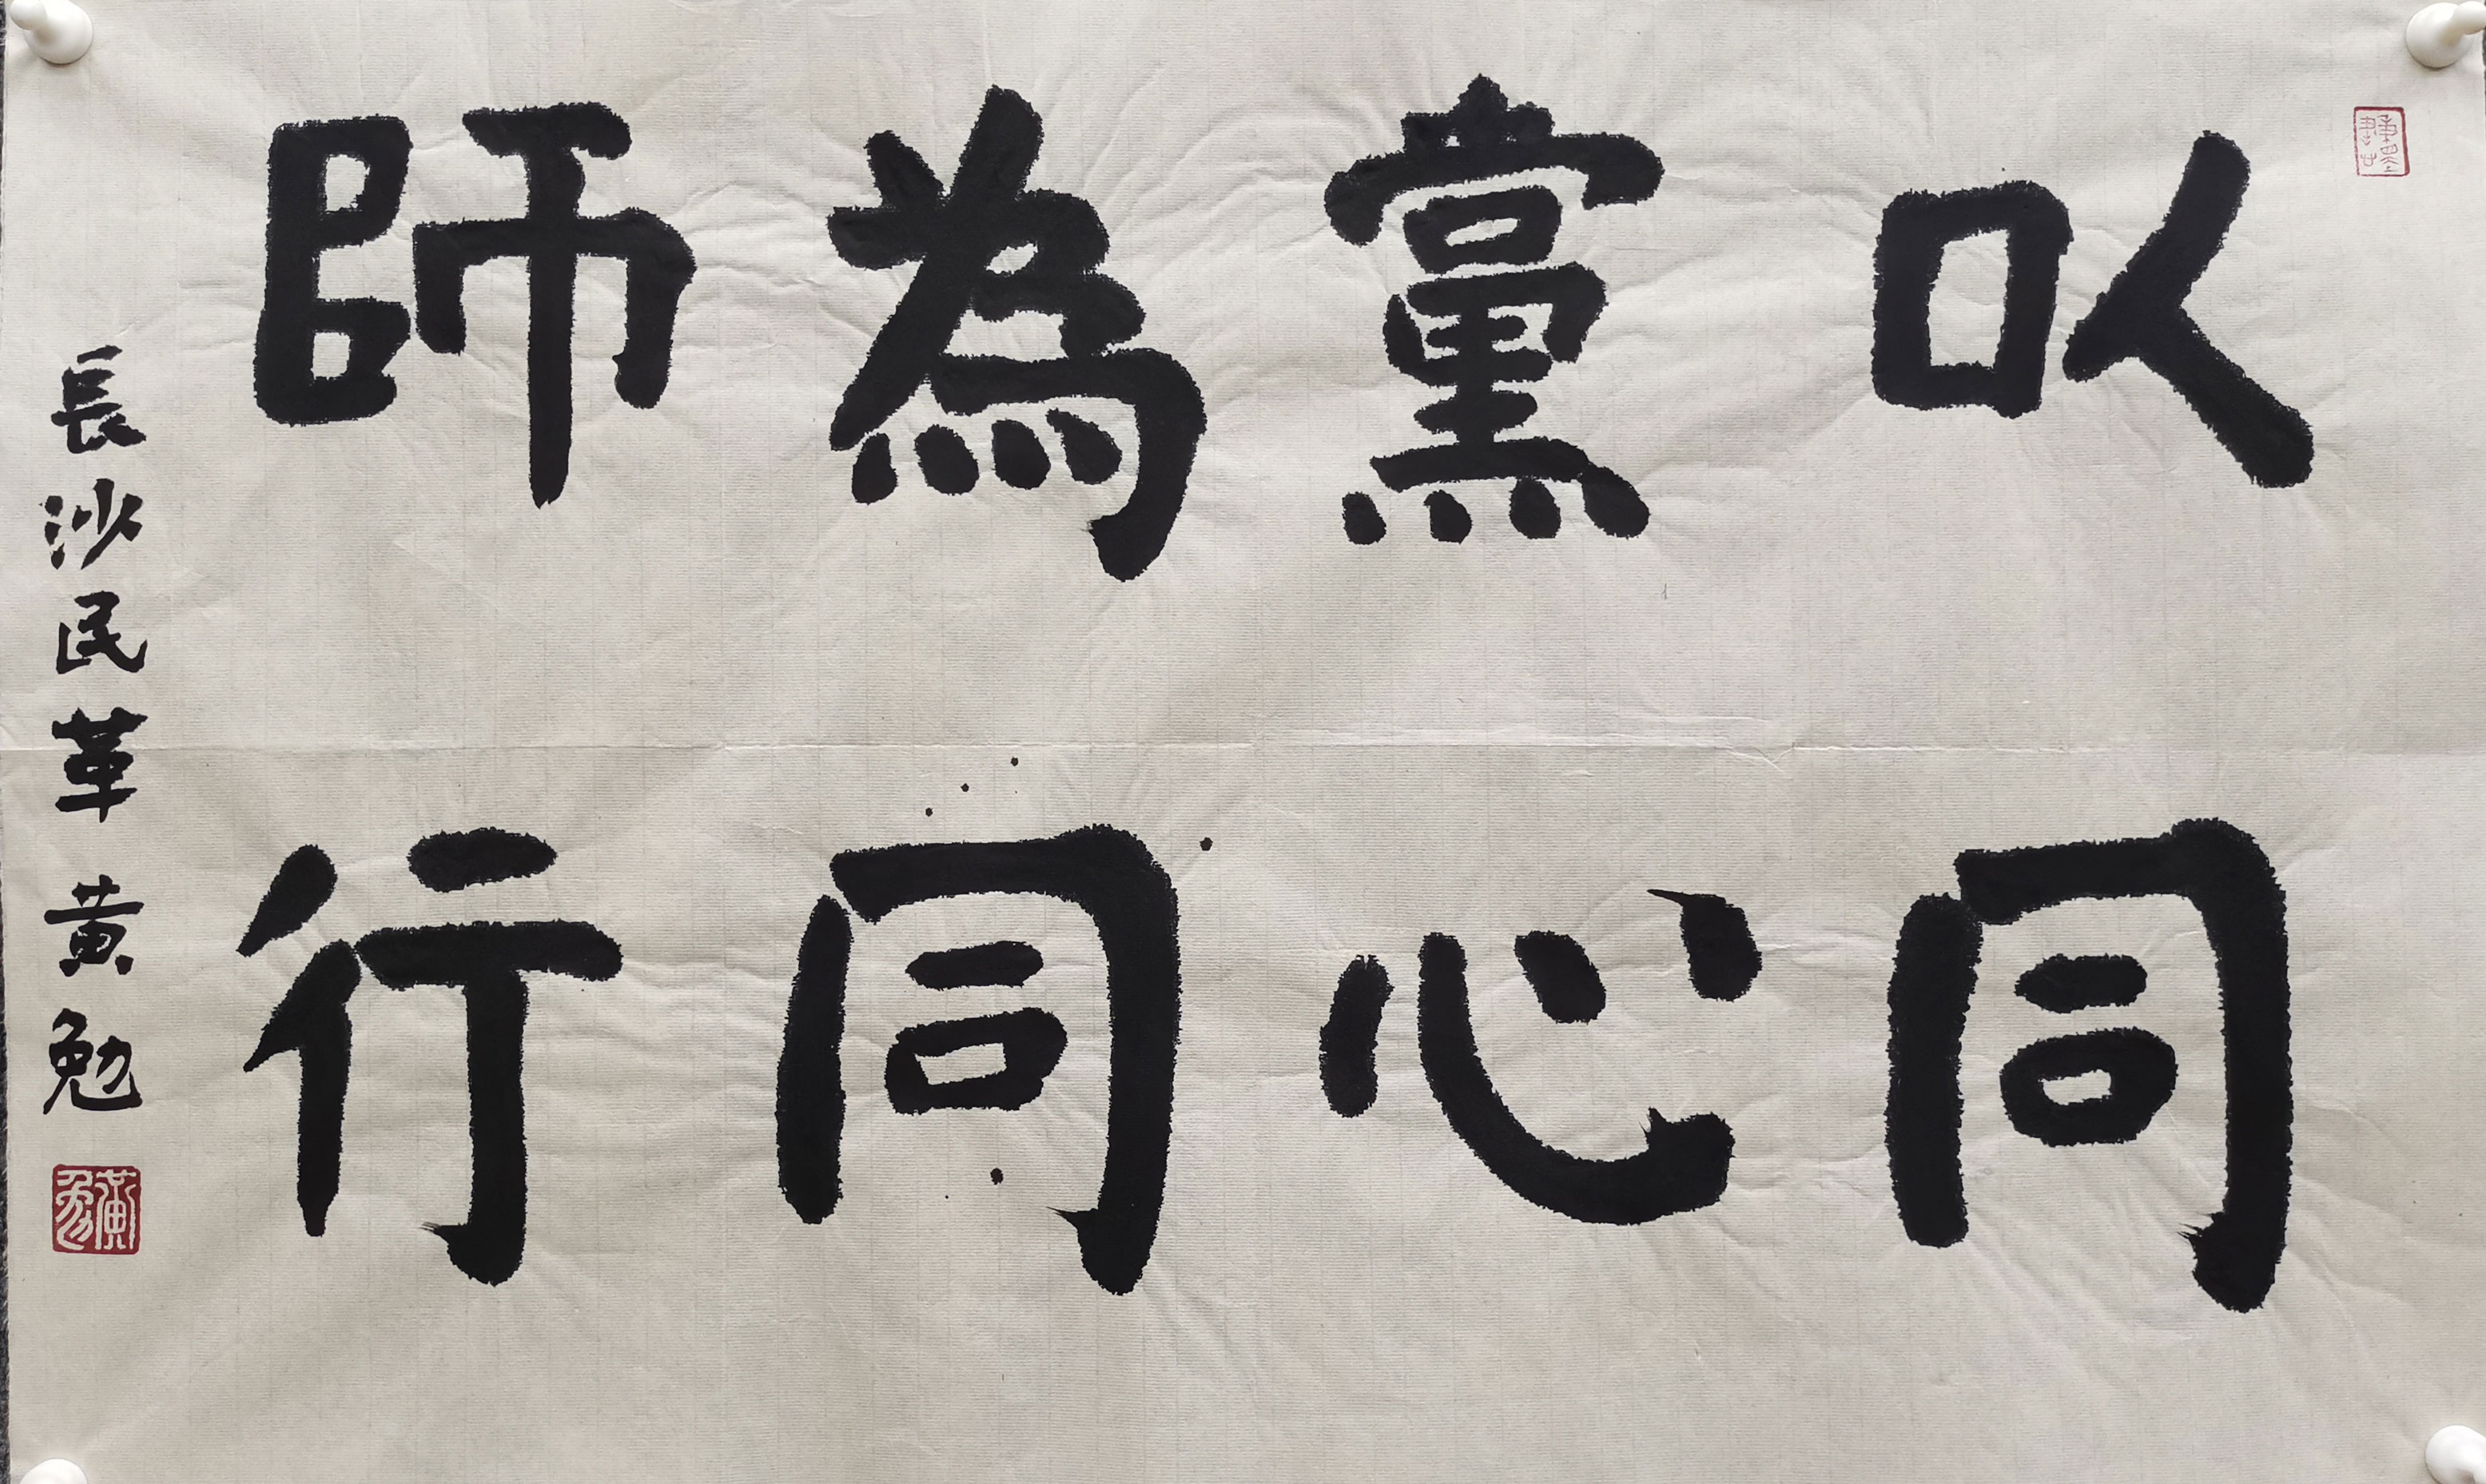 以黨為師
同心同行
長沙民革 黃勉
黃勉